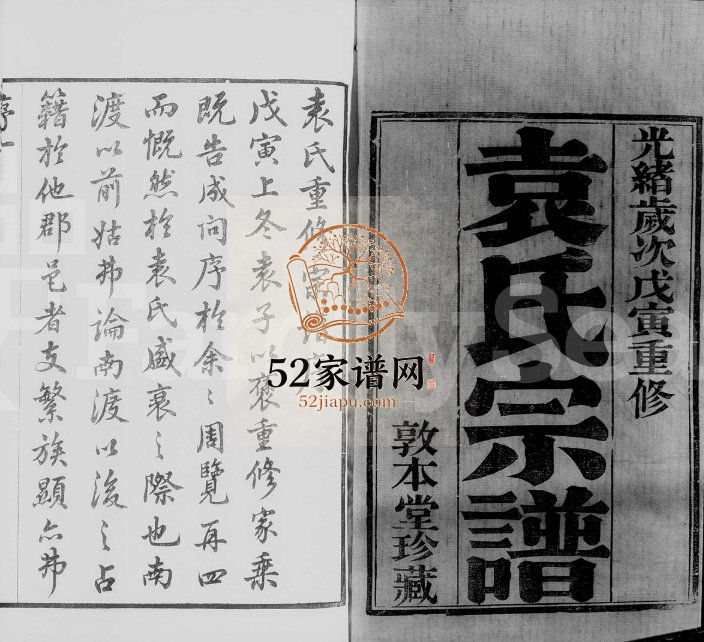 光緒歲次戊寅重修
袁氏宗譜
敦本堂珍藏
袁氏重修宗譜序
戊寅上冬袁子以褒重修家乘
既告成問序於余〻周覽再四
而慨然於袁氏盛衰〻際也南
渡以前姑弗論南渡以後〻占
籍於他郡邑者支繁族顯亦弗
序一
52家谱网
52jiapu.com